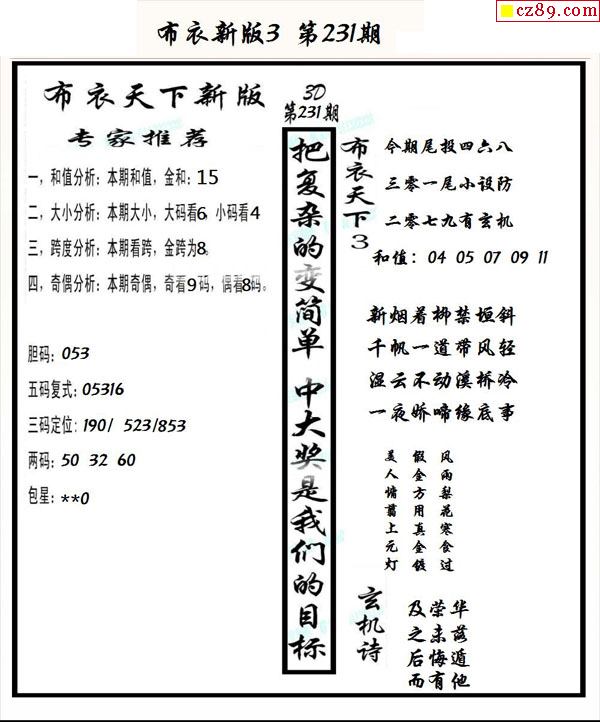 cz89.com
布衣新版3 第231期
布衣天下新版
专家推荐
一，和值分析：本期和值，金和：15
二，大小分析：本期大小，大码看6，小码看4
三，跨度分析：本期看跨，金跨为8。
四，奇偶分析：本期奇偶，奇看9码，偶看8码。
胆码：053
五码复式：05316
三码定位：190/ 523/853
两码：50 32 60
包星：**0
3D
第231期
把复杂的变简单 中大奖是我们的目标
布衣天下3
今期尾投四六八
三零一尾小设防
二零七九有玄机
和值：04 05 07 09 11
新烟着柳禁垣斜
千帆一道带风轻
湿云不动溪桥冷
一夜娇啼缘底事
美人慵翦上元灯
假金方用真金镀
风雨梨花寒食过
玄机诗
及荣华
之未落
后悔遁
而有他